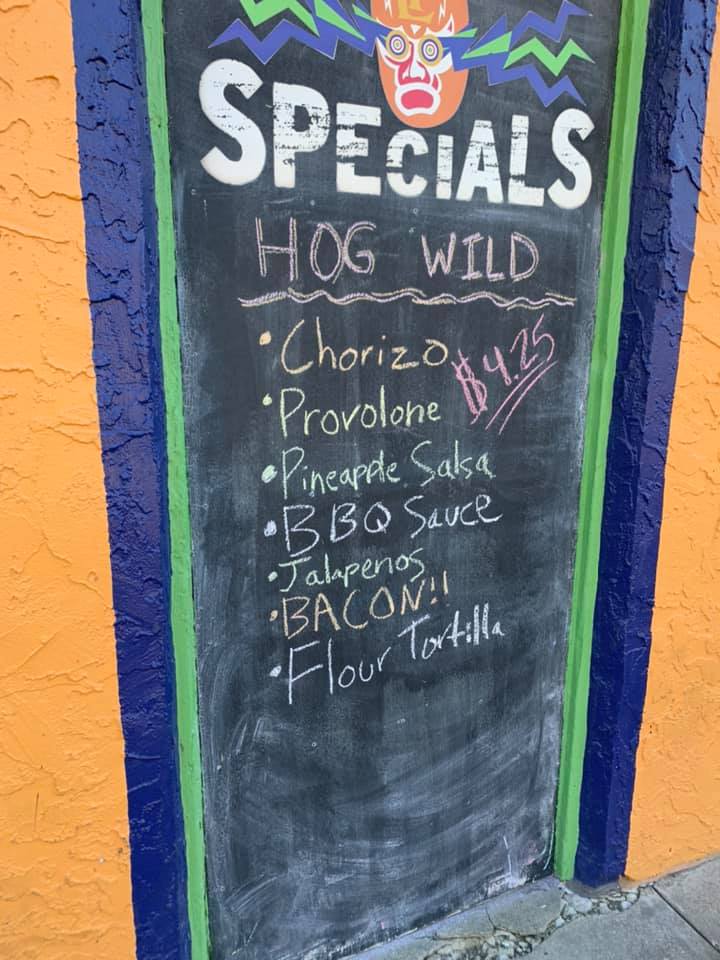 SPECIALS
HOG WILD
• Chorizo $4.25
• Provolone
• Pineapple Salsa
• BBQ Sauce
• Jalapenos
• BACON!!
• Flour Tortilla